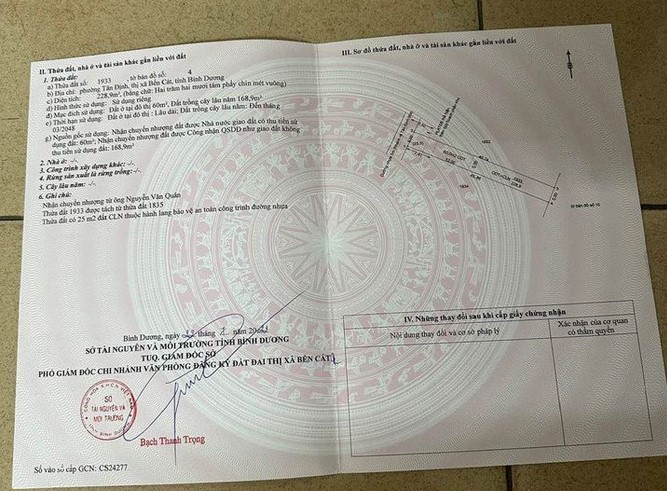 II. Thửa đất, nhà ở và tài sản khác gắn liền với đất
1. Thửa đất:
a) Thửa đất số: 1933 , tờ bản đồ số: 4
b) Địa chỉ: phường Tân Định, thị xã Bến Cát, tỉnh Bình Dương
c) Diện tích: 228,9m², (bằng chữ: Hai trăm hai mươi tám phẩy chín mét vuông)
d) Hình thức sử dụng: Sử dụng riêng
đ) Mục đích sử dụng: Đất ở tại đô thị 60m²; Đất trồng cây lâu năm 168,9m²
e) Thời hạn sử dụng: Đất ở tại đô thị : Lâu dài; Đất trồng cây lâu năm: Đến tháng
03/2048
g) Nguồn gốc sử dụng: Nhận chuyển nhượng đất được Nhà nước giao đất có thu tiền sử
dụng đất: 60m²; Nhận chuyển nhượng đất được Công nhận QSDĐ như giao đất không
thu tiền sử dụng đất: 168,9m²
2. Nhà ở: -/-
3. Công trình xây dựng khác: -/-
4. Rừng sản xuất là rừng trồng: -/-
5. Cây lâu năm: -/-
6. Ghi chú:
Nhận chuyển nhượng từ ông Nguyễn Văn Quân
Thửa đất 1933 được tách từ thửa đất 1835
Thửa đất có 25 m2 đất CLN thuộc hành lang bảo vệ an toàn công trình đường nhựa
Bình Dương, ngày tháng 2 năm
SỞ TÀI NGUYÊN VÀ MÔI TRƯỜNG TỈNH BÌNH DƯƠNG
TUQ. GIÁM ĐỐC SỞ
PHÓ GIÁM ĐỐC CHI NHÁNH VĂN PHÒNG ĐĂNG KÝ ĐẤT ĐAI THỊ XÃ BẾN CÁT
SỞ
TÀI NGUYÊN VÀ
MÔI TRƯỜNG
Bạch Thanh Trọng
Số vào sổ cấp GCN: CS24277
III. Sơ đồ thửa đất, nhà ở và tài sản khác gắn liền với đất
1834
Tờ bản đồ số 10
IV. Những thay đổi sau khi cấp giấy chứng nhận
Nội dung thay đổi và cơ sở pháp lý
Xác nhận của cơ quan
có thẩm quyền